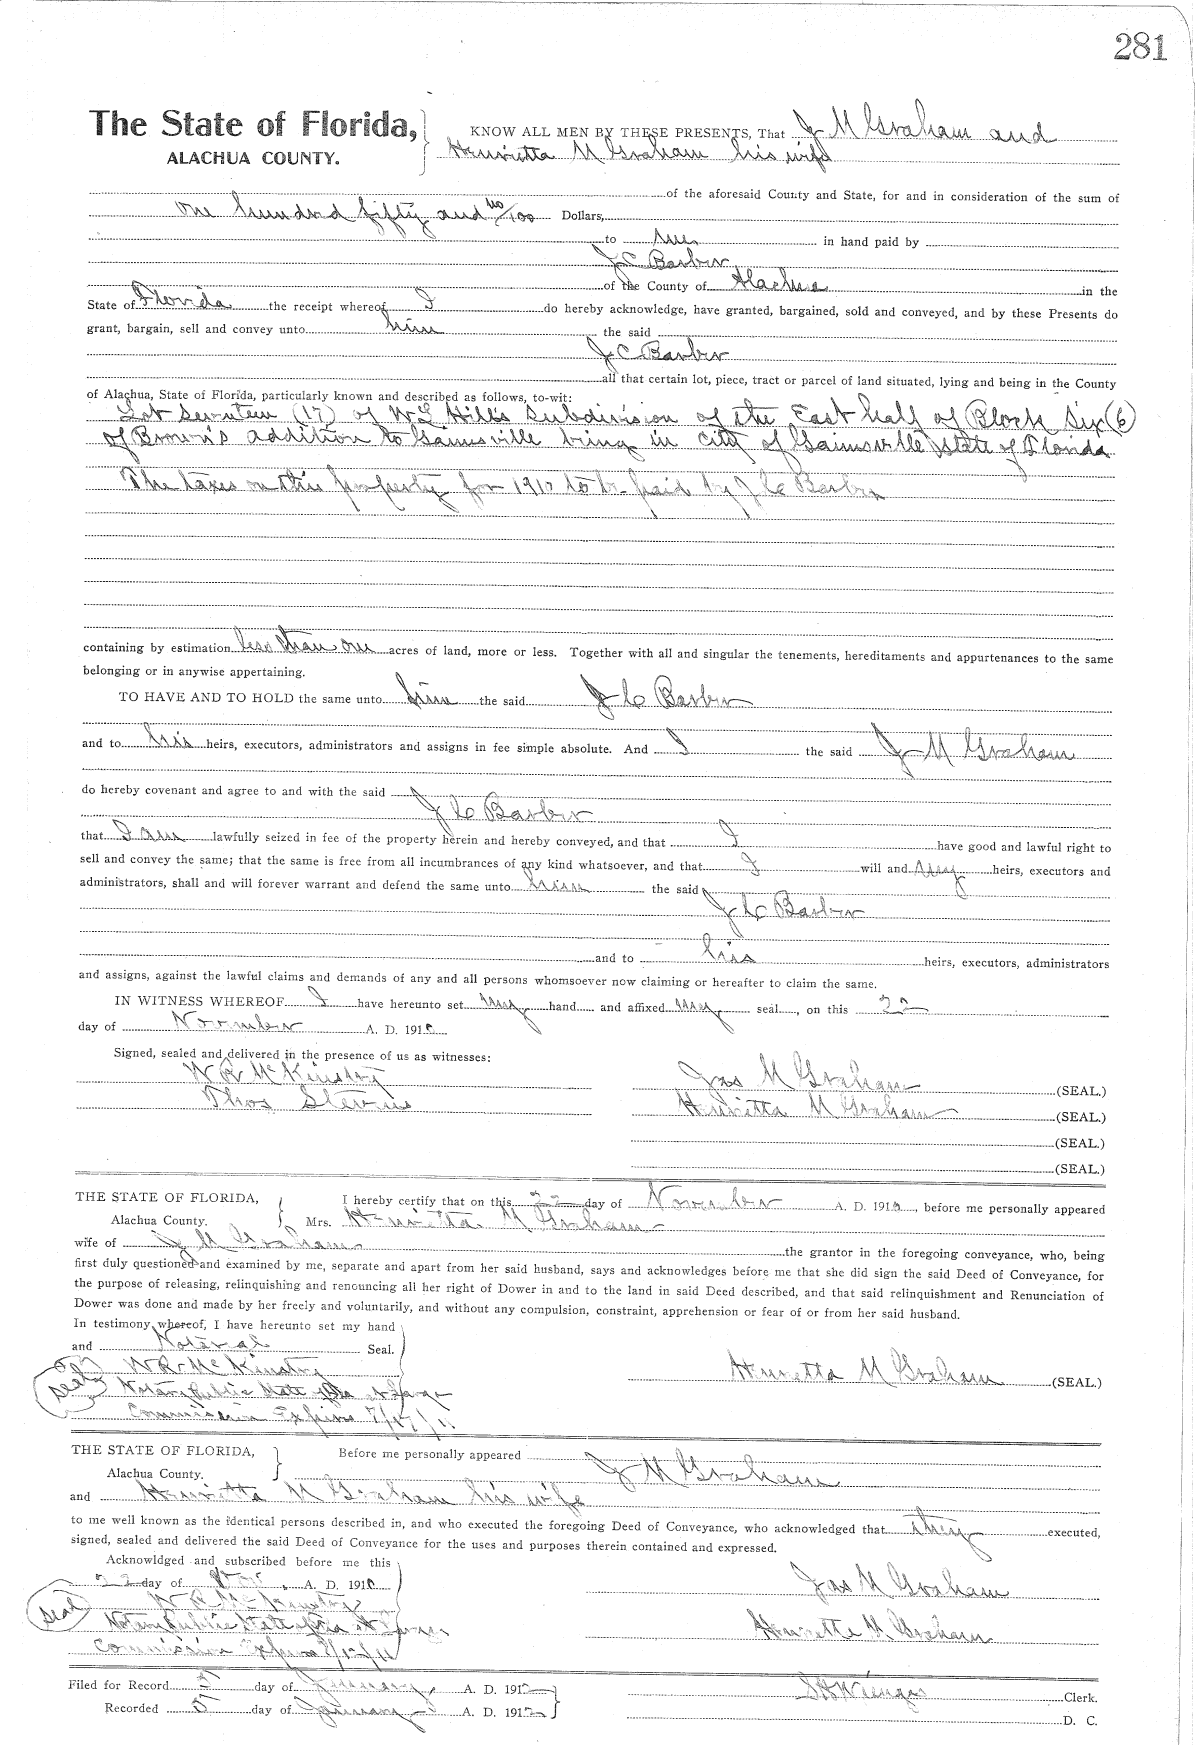 281
The State of Florida, KNOW ALL MEN BY THESE PRESENTS, That J M Graham and
ALACHUA COUNTY. Henrietta M Graham his wife
of the aforesaid County and State, for and in consideration of the sum of
One hundred fifty and no/100 Dollars,
to me in hand paid by
J C Barber
of the County of Alachua in the
State of Florida the receipt whereof I do hereby acknowledge, have granted, bargained, sold and conveyed, and by these Presents do
grant, bargain, sell and convey unto him the said
J C Barber
all that certain lot, piece, tract or parcel of land situated, lying and being in the County
of Alachua, State of Florida, particularly known and described as follows, to-wit:
Lot Seventeen (17) of W L Hill's Subdivision of the East half of Block Six (6)
of Brown's addition to Gainsville being in city of Gainsville State of Florida
The taxes on this property for 1910 to be paid by J C Barber
containing by estimation less than one acres of land, more or less. Together with all and singular the tenements, hereditaments and appurtenances to the same
belonging or in anywise appertaining.
TO HAVE AND TO HOLD the same unto him the said J C Barber
and to his heirs, executors, administrators and assigns in fee simple absolute. And I the said J M Graham
do hereby covenant and agree to and with the said
J C Barber
that I am lawfully seized in fee of the property herein and hereby conveyed, and that I have good and lawful right to
sell and convey the same; that the same is free from all incumbrances of any kind whatsoever, and that I will and my heirs, executors and
administrators, shall and will forever warrant and defend the same unto him the said
J C Barber
and to his heirs, executors, administrators
and assigns, against the lawful claims and demands of any and all persons whomsoever now claiming or hereafter to claim the same.
IN WITNESS WHEREOF I have hereunto set my hand and affixed my seal, on this 22
day of November A. D. 1910
Signed, sealed and delivered in the presence of us as witnesses:
W R McKinstry Jas M Graham (SEAL.)
Thos Stevens Henrietta M Graham (SEAL.)
(SEAL.)
(SEAL.)
THE STATE OF FLORIDA, I hereby certify that on this 22 day of November A. D. 1910, before me personally appeared
Alachua County. Mrs. Henrietta M Graham
wife of J M Graham the grantor in the foregoing conveyance, who, being
first duly questioned and examined by me, separate and apart from her said husband, says and acknowledges before me that she did sign the said Deed of Conveyance, for
the purpose of releasing, relinquishing and renouncing all her right of Dower in and to the land in said Deed described, and that said relinquishment and Renunciation of
Dower was done and made by her freely and voluntarily, and without any compulsion, constraint, apprehension or fear of or from her said husband.
In testimony whereof, I have hereunto set my hand
and Noterial Seal.
W R McKinstry Henrietta M Graham (SEAL.)
seal Notary Public State of Fla at Large
Commission Expires 7/17/11
THE STATE OF FLORIDA, Before me personally appeared J M Graham
Alachua County.
and Henrietta M Graham his wife
to me well known as the identical persons described in, and who executed the foregoing Deed of Conveyance, who acknowledged that they executed,
signed, sealed and delivered the said Deed of Conveyance for the uses and purposes therein contained and expressed.
Acknowldged and subscribed before me this
22 day of Nov, A. D. 1910 Jas M Graham
W R McKinstry
seal Notary Public State of Fla At Large Henrietta M Graham
Commission Expires
Filed for Record 5 day of January, A. D. 1912 Clerk.
Recorded 5 day of January A. D. 1912 D. C.